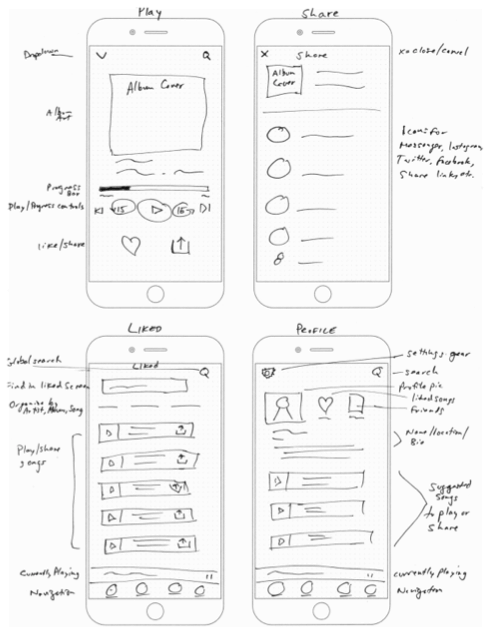 Play
Dropdown
Album Cover
Album
Art
Progress
Bar
Play/Progress controls
15
15
Like/share
Share
Share
X=close/cancel
Album
Cover
Icons for
Messenger, Instagram,
Twitter, Facebook,
Share link, etc.
LIKED
Global search
Liked
Find in liked screen
Organize by
Artist, Album, Song
Play/share
songs
Currently Playing
Navigation
PROFILE
settings gear
search
Profile pic
liked songs
Friends
Name/location/
Bio
Suggested
songs
to play or
share
currently playing
Navigation